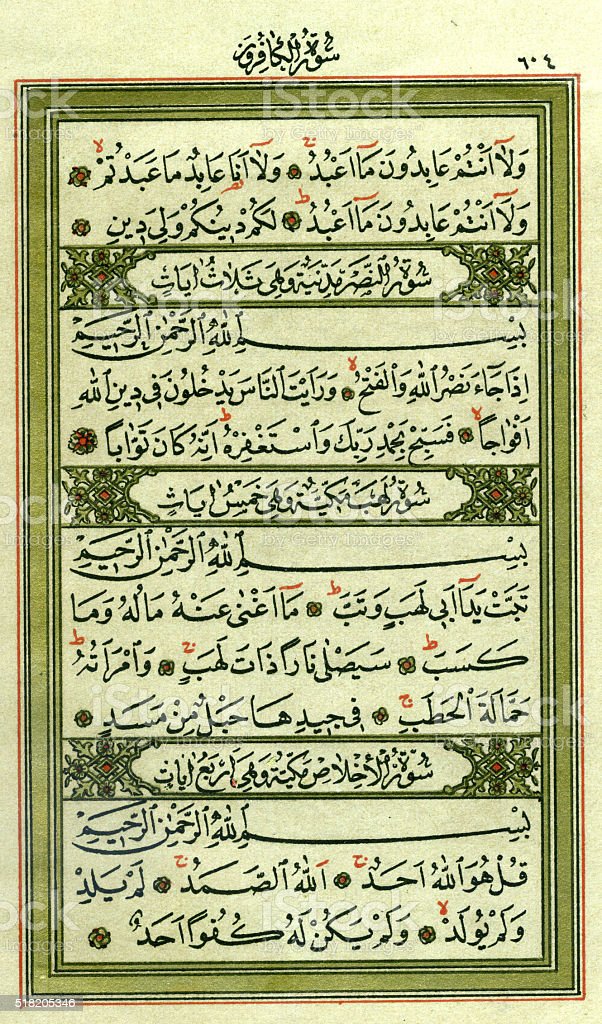 سورة الكافرون ٦٠٤
وَلَٓا اَنْتُمْ عَابِدُونَ مَٓا اَعْبُدُ ۞ وَلَٓا اَنَا۬ عَابِدٌ مَا عَبَدْتُمْ ۞
وَلَٓا اَنْتُمْ عَابِدُونَ مَٓا اَعْبُدُ ۞ لَكُمْ دِينُكُمْ وَلِيَ دِينِ ۞
سورة النصر مدنية وهى ثلاث ايات
بِسْمِ اللّٰهِ الرَّحْمٰنِ الرَّحِيمِ
اِذَا جَٓاءَ نَصْرُ اللّٰهِ وَالْفَتْحُ ۞ وَرَاَيْتَ النَّاسَ يَدْخُلُونَ فِى دِينِ اللّٰهِ
اَفْوَاجًا ۞ فَسَبِّحْ بِحَمْدِ رَبِّكَ وَاسْتَغْفِرْهُ اِنَّهُ كَانَ تَوَّابًا ۞
سورة لهب مكية وهى خمس ايات
بِسْمِ اللّٰهِ الرَّحْمٰنِ الرَّحِيمِ
تَبَّتْ يَدَٓا اَبِى لَهَبٍ وَتَبَّ ۞ مَٓا اَغْنٰى عَنْهُ مَالُهُ وَمَا
كَسَبَ ۞ سَيَصْلٰى نَارًا ذَاتَ لَهَبٍ ۞ وَامْرَاَتُهُ
حَمَّالَةَ الْحَطَبِ ۞ فِى جِيدِهَا حَبْلٌ مِنْ مَسَدٍ ۞
سورة الاخلاص مكية وهى اربع ايات
بِسْمِ اللّٰهِ الرَّحْمٰنِ الرَّحِيمِ
قُلْ هُوَ اللّٰهُ اَحَدٌ ۞ اَللّٰهُ الصَّمَدُ ۞ لَمْ يَلِدْ
وَلَمْ يُولَدْ ۞ وَلَمْ يَكُنْ لَهُ كُفُوًا اَحَدٌ ۞
iStock
by Getty Images
518205346